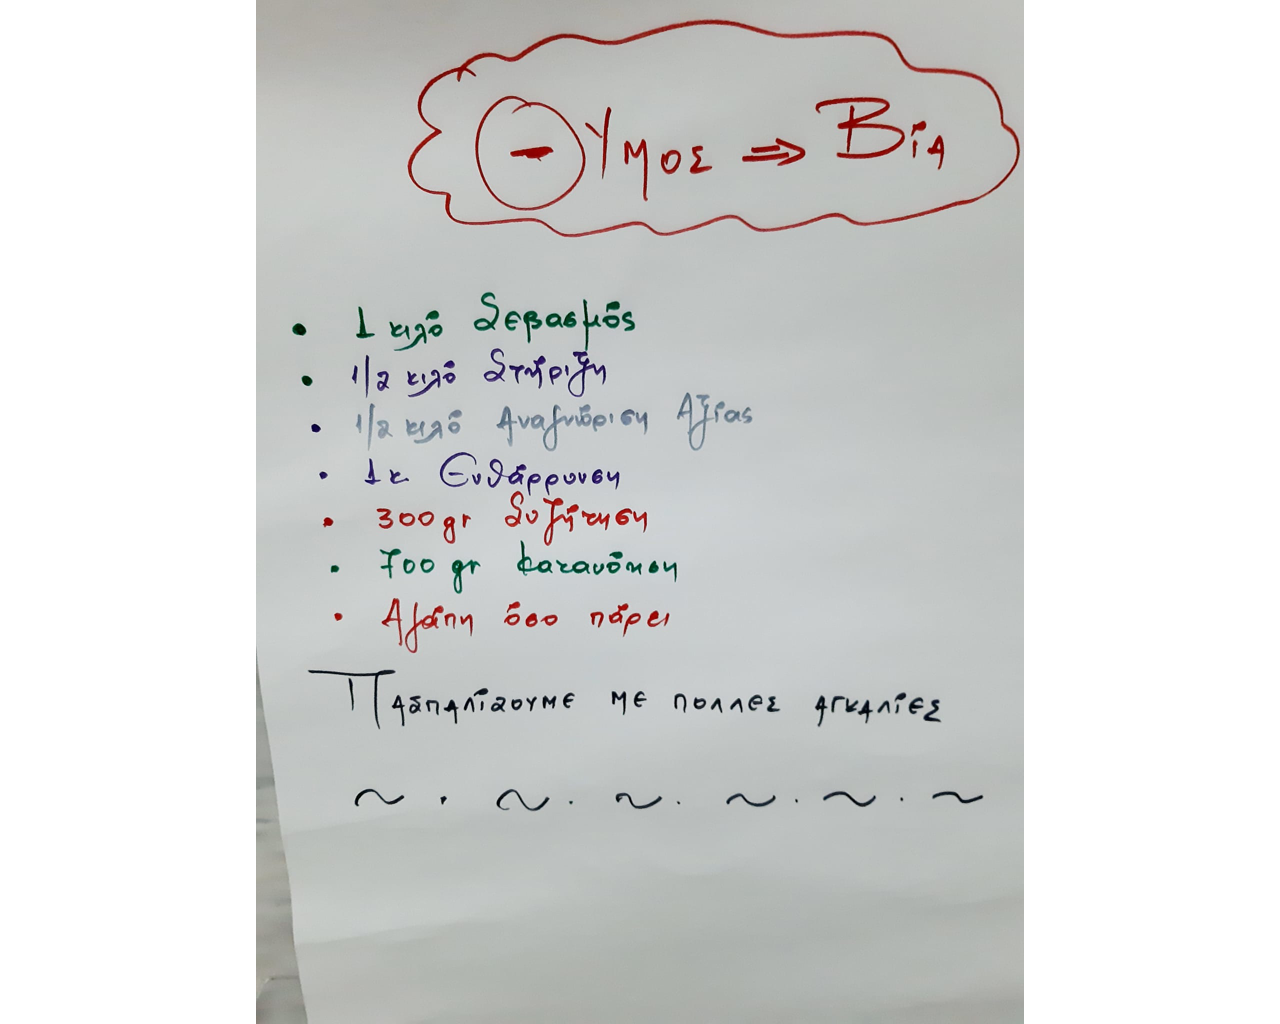 Θυμος ⇒ Βία
• 1 κιλό Σεβασμός
• 1/2 κιλό Στήριξη
• 1/2 κιλό Αναγνώριση Αξίας
• 1 κ. Ενθάρρυνση
• 300 gr Συζήτηση
• 700 gr Κατανόηση
• Αγάπη όσο πάρει
ΠΑΣΠΑΛίΖΟΥΜΕ ΜΕ ΠΟΛΛΕΣ ΑΓΚΑΛίΕΣ
~ . ~ . ~ . ~ . ~ . ~